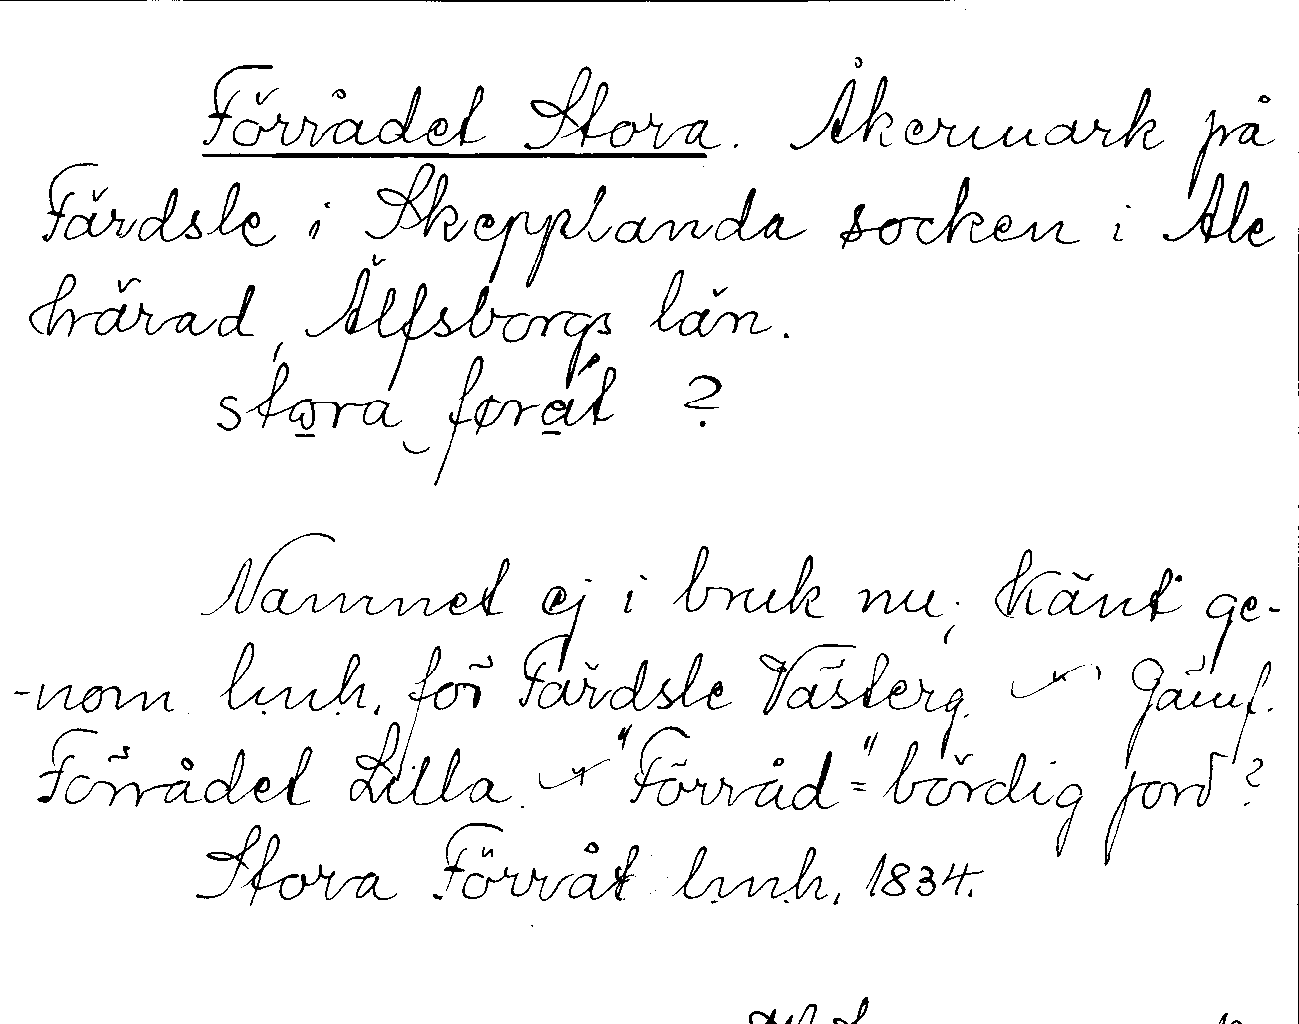 Förrådet Stora. Åkermark på
Färdsle i Skepplanda socken i Ale
härad, Älfsborgs län.
stora forát ?
Namnet ej i bruk nu; känt ge-
-nom l.m.h. för Färdsle Västerg. Jämf.
Förrådet Lilla. "Förråd" = bördig jord?
Stora Förråt l.m.h. 1834.